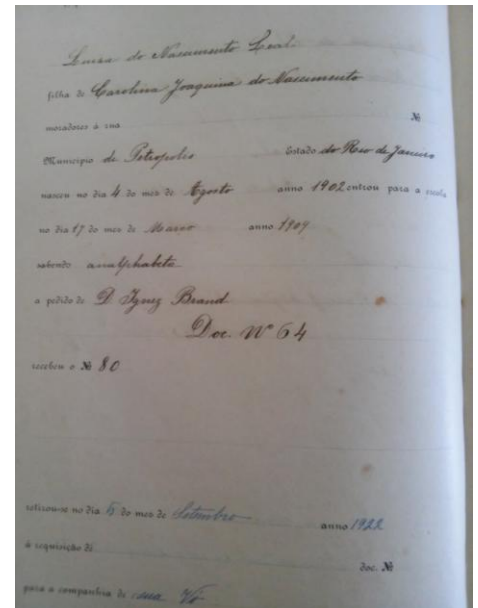 Luiza do Nascimento Leal
filha de Carolina Joaquina do Nascimento
moradores á rua Nº
Municipio de Petropolis Estado do Rio de Janeiro
nasceu no dia 4 do mes de Agosto anno 1902 entrou para a escola
no dia 17 do mes de Março anno 1909
sabendo analphabeta
a pedido de D Ignez Brand
Doc. Nº 64
recebeu o Nº 80
retirou-se no dia 5 do mes de Setembro anno 1922
á requisição de doc. Nº
para a companhia de sua Vó